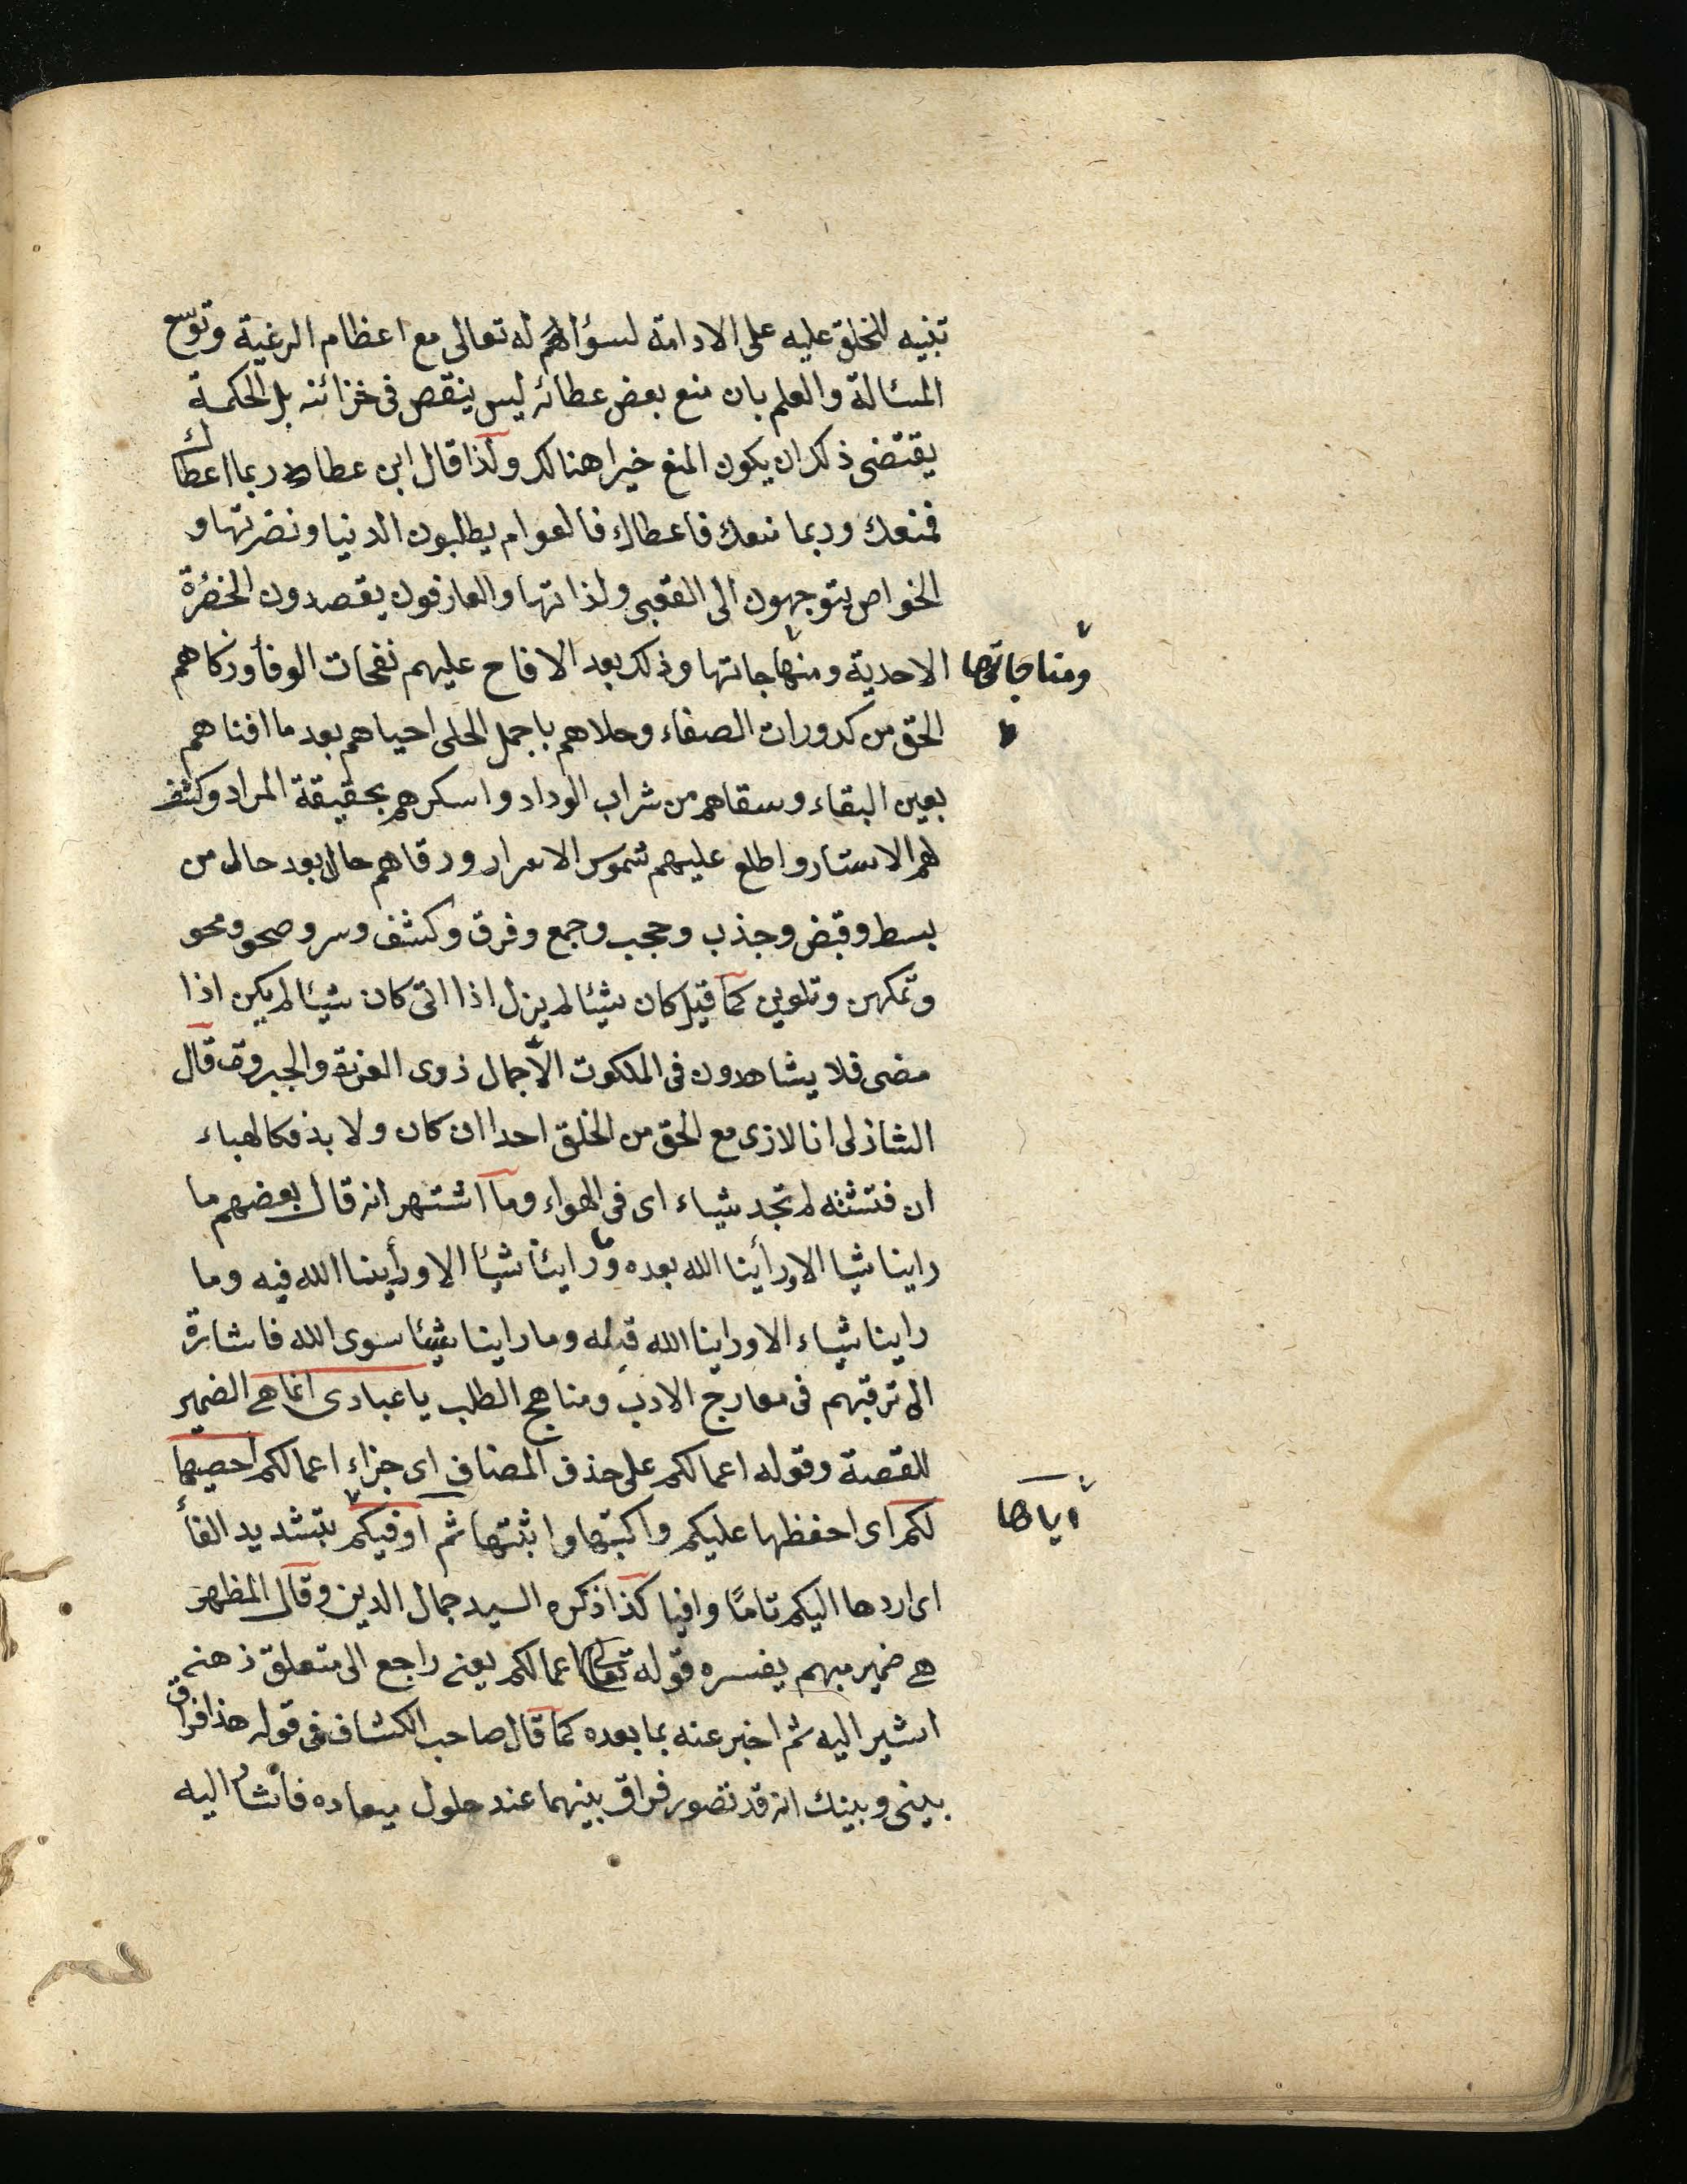 تنبيه للخلق عليه على الادامة لسؤالهم له تعالى مع اعظام الرغبة وتوسع
المسئالة والعلم بان منع بعض عطائه ليس ينقص فى خزائنه بل الحكمة
يقتضى ذلك ان يكون المنع خيرا هنالك ولذا قال ابن عطاء ربما اعطاك
فمنعك وربما منعك فاعطاك فالعوام يطلبون الدنيا ونضرتها و
الخواص يتوجهون الى العقبى ولذاتها والعارفون يقصدون الحضرة
الاحدية ومنهاجاتها وذلك بعد الافاح عليهم نفحات الوفأ وزكاهم
ومناجاتها
الحق من كدورات الصفاء وحلاهم باجمل الحلى احياهم بعد ما افناهم
بعين البقاء وسقاهم من شراب الوداد واسكرهم بحقيقة المراد وكشف
لهم الاستار واطلع عليهم شموس الاسرار ورقاهم حال بعد حال من
بسط وقبض وجذب وحجب وجمع وفرق وكشف وسر وصحو ومحو
وتمكين وتلوين كما قيل كان شيئا لم يزل اذا اتى كان شيئا لم يكن اذا
مضى فلا يشاهدون فى الملكوت الا جمال ذوى العزة والجبروت قال
الشاذلى انا لا نرى مع الحق من الخلق احدا ان كان ولا بد فكالهباء
ان فتشته لم تجد شياء اى فى الهواء وما اشتهر انه قال بعضهم ما
راينا شيا الا ورأينا الله بعده وما رايئنا شيئا الا ورأيننا الله فيه وما
راينا شياء الا وراينا الله قبله وما راينا شيئا سوى الله فاشارة
الى ترقيهم فى معارج الادب ومناهج الطلب يا عبادى انما هى الضمير
للقصة وقوله اعمالكم على حذف المضاف اى جزاء اعمالكم احصيها
لكم اى احفظها عليكم واكبتها واثبتها ثم اوفيكم بتشديد الفأ
اياها
اى اردها اليكم تامّا وافيا كذا ذكره السيد جمال الدين وقال المظهر
هى ضمير مبهم يفسره قوله تعالى اعمالكم يعنى راجع الى متعلق ذهنى
اشير اليه ثم اخبر عنه بما بعده كما قال صاحب الكشاف فى قوله هذا فراق
بينى وبينك انه قد تصور فراق بينهما عند حلول ميعاده فاشار اليه